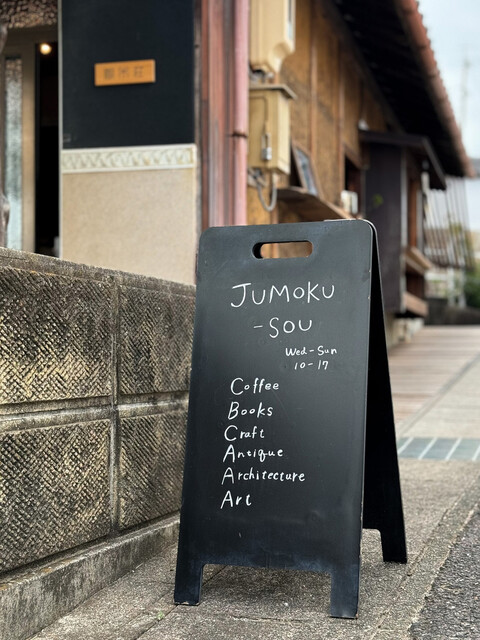 JUMOKU
-SOU
Wed-Sun
10-17
Coffee
Books
Craft
Antique
Architecture
Art